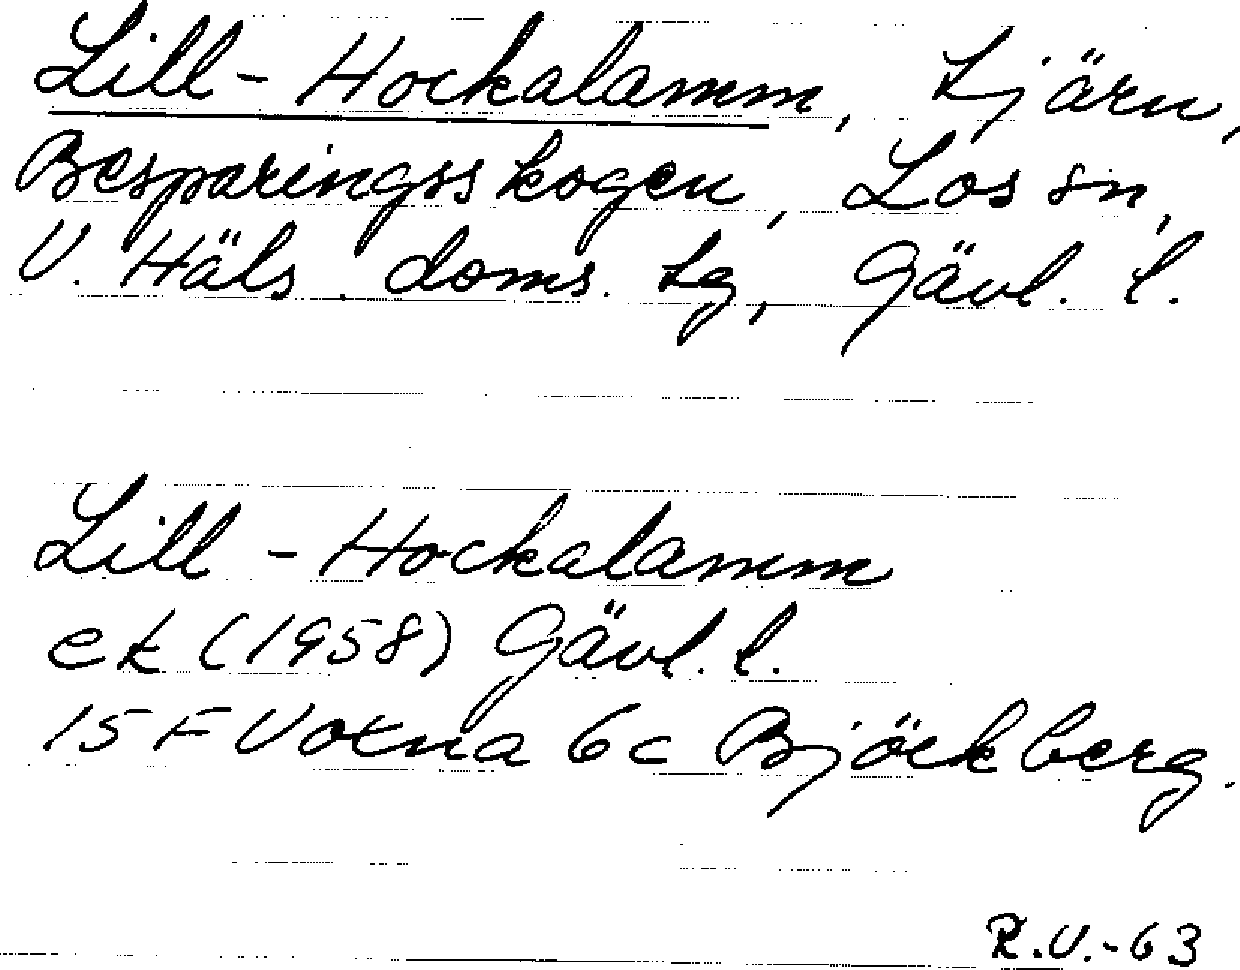 Lill-Hockalamm, tjärn,
Besparingsskogen, Los sn,
V. Häls. doms. tg, Gävl. l.
Lill - Hockalamm
ek (1958) Gävl. l.
15 F Voxna 6c Björkberg.
R.V.-63